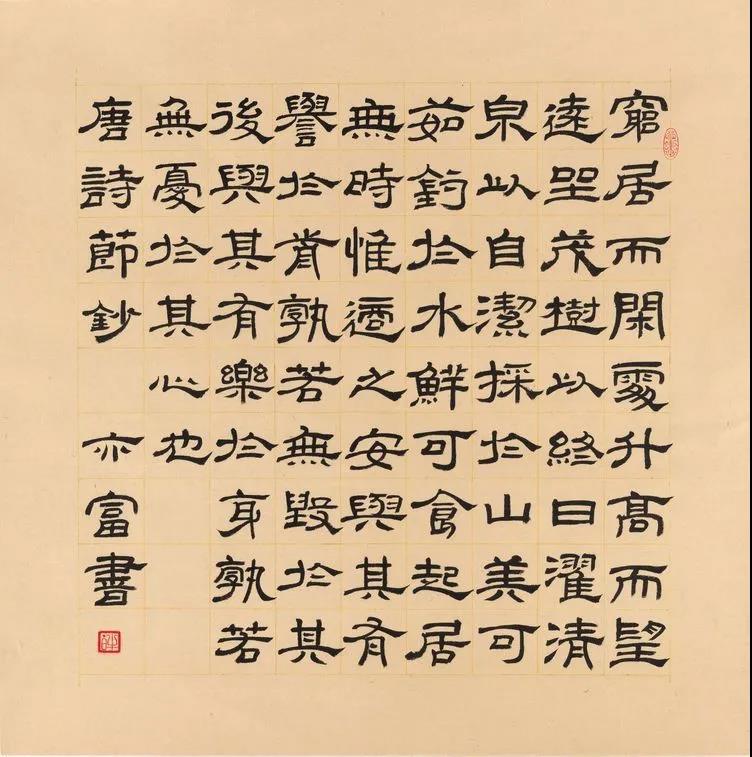 窮居而閑處升高而望
遠坐茂樹以終日濯清
泉以自潔採於山美可
茹釣於水鮮可食起居
無時惟適之安與其有
譽於前孰若無毀於其
後與其有樂於身孰若
無憂於其心也
唐詩節鈔 亦富書